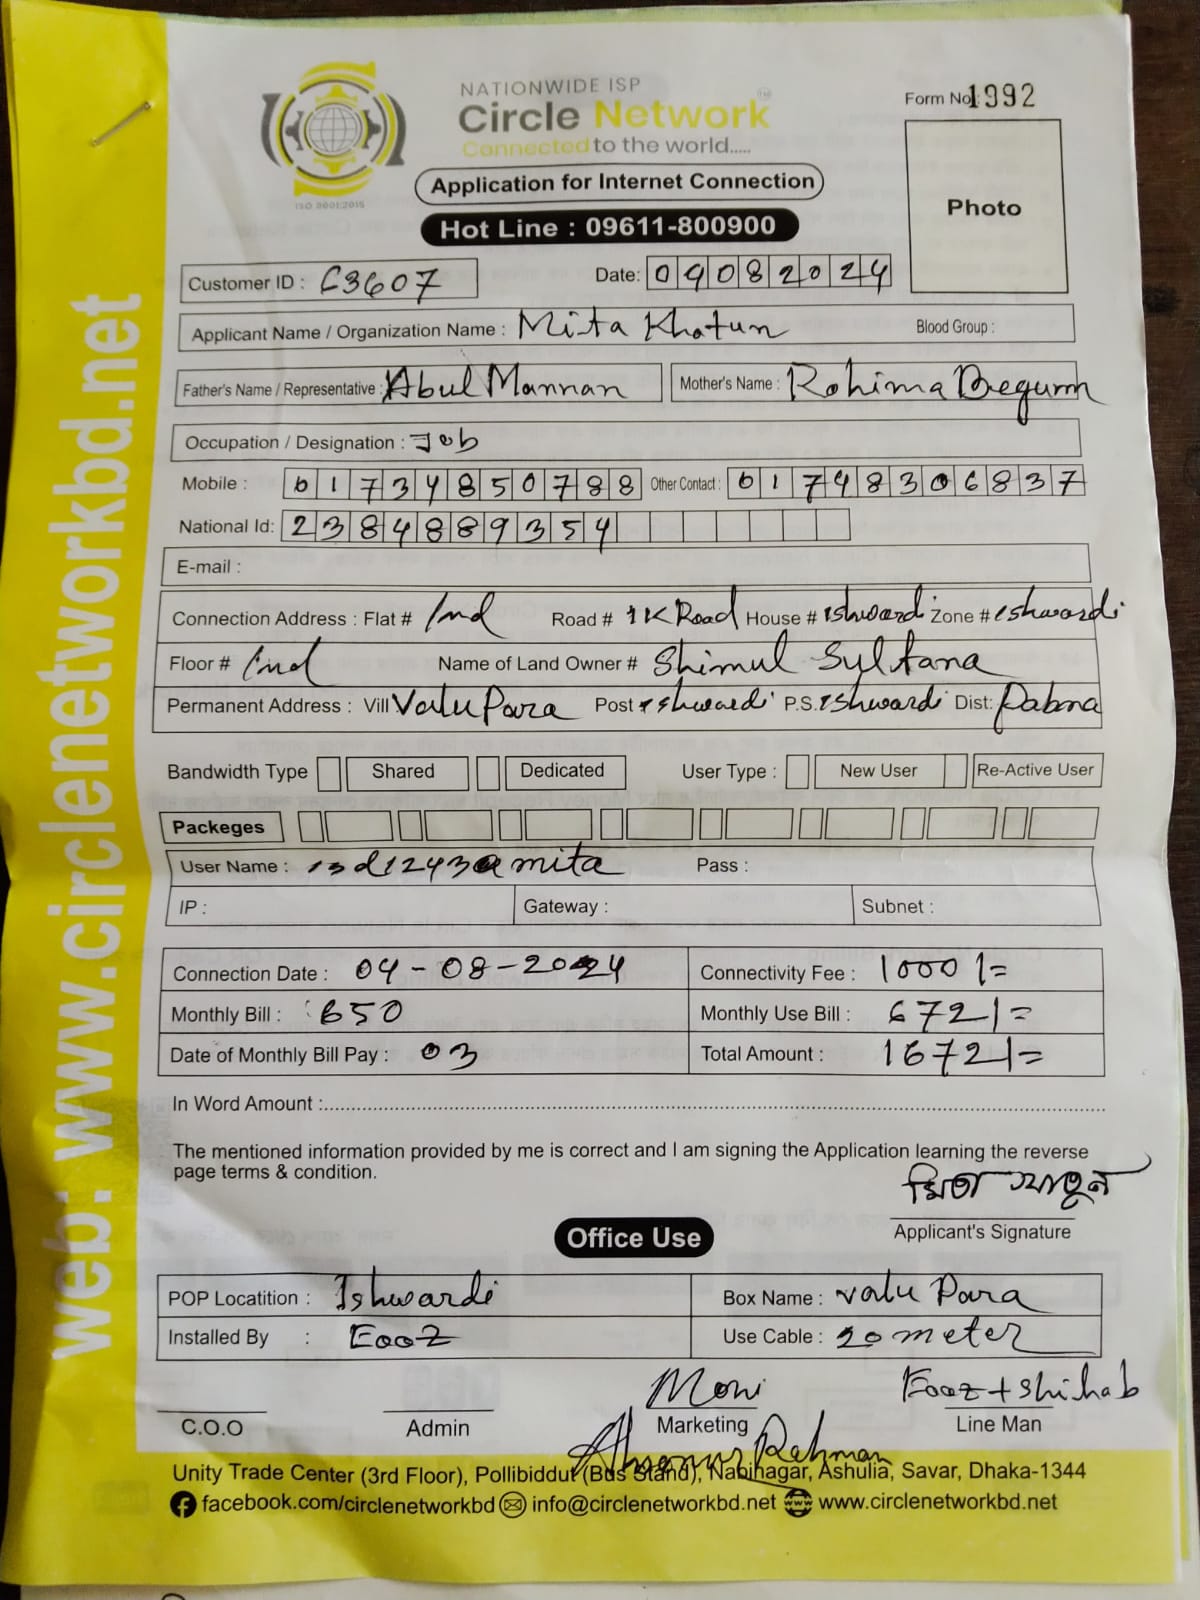 NATIONWIDE ISP
Circle Network
Connected to the world.....
ISO 9001:2015
Form No: 1992
Photo
Application for Internet Connection
Hot Line : 09611-800900
Customer ID : C3607
Date: 09082024
Applicant Name / Organization Name : Mita Khatun Blood Group :
Father's Name / Representative : Abul Mannan Mother's Name : Rohima Begum
Occupation / Designation : Job
Mobile : 01734850788 Other Contact : 01748306837
National Id: 2384889354
E-mail :
Connection Address : Flat # Ind Road # IK Road House # Ishwardi Zone # Ishwardi
Floor # Ind Name of Land Owner # Shimul Sultana
Permanent Address : Vill Valu Para Post Ishwardi P.S. Ishwardi Dist: Pabna
Bandwidth Type Shared Dedicated User Type : New User Re-Active User
Packeges
User Name : mita Pass :
IP : Gateway : Subnet :
Connection Date : 04-08-2024 Connectivity Fee : 1000/=
Monthly Bill : 650 Monthly Use Bill : 672/=
Date of Monthly Bill Pay : 03 Total Amount : 1672/=
In Word Amount :
The mentioned information provided by me is correct and I am signing the Application learning the reverse
page terms & condition.
মিতা খাতুন
Applicant's Signature
Office Use
POP Locatition : Ishwardi Box Name : Valu Para
Installed By : Eooz Use Cable : 20 meter
Moni Eooz + Shihab
C.O.O Admin Marketing Line Man
Rahman
Unity Trade Center (3rd Floor), Pollibiddut (Bus Stand), Nabinagar, Ashulia, Savar, Dhaka-1344
facebook.com/circlenetworkbd info@circlenetworkbd.net www.circlenetworkbd.net
web: www.circlenetworkbd.net